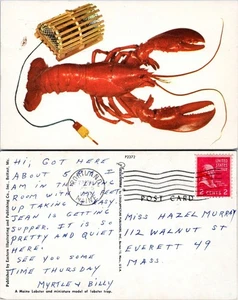 P2372
Hi, GOT HERE
ABOUT 5
AM IN THE LIVING
ROOM WITH MY FEET
UP TAKING IT EASY.
JEAN IS GETTING
SUPPER. IT IS SO
PRETTY AND QUIET
HERE.
SEE YOU SOME
TIME THURSDAY
MYRTLE & BILLY
A Maine Lobster and miniature model of lobster trap.
Published by Eastern Illustrating and Publishing Co., Inc., Belfast, Me.
POST CARD
MISS HAZEL MURRAY
112 WALNUT ST
EVERETT 49
MASS.